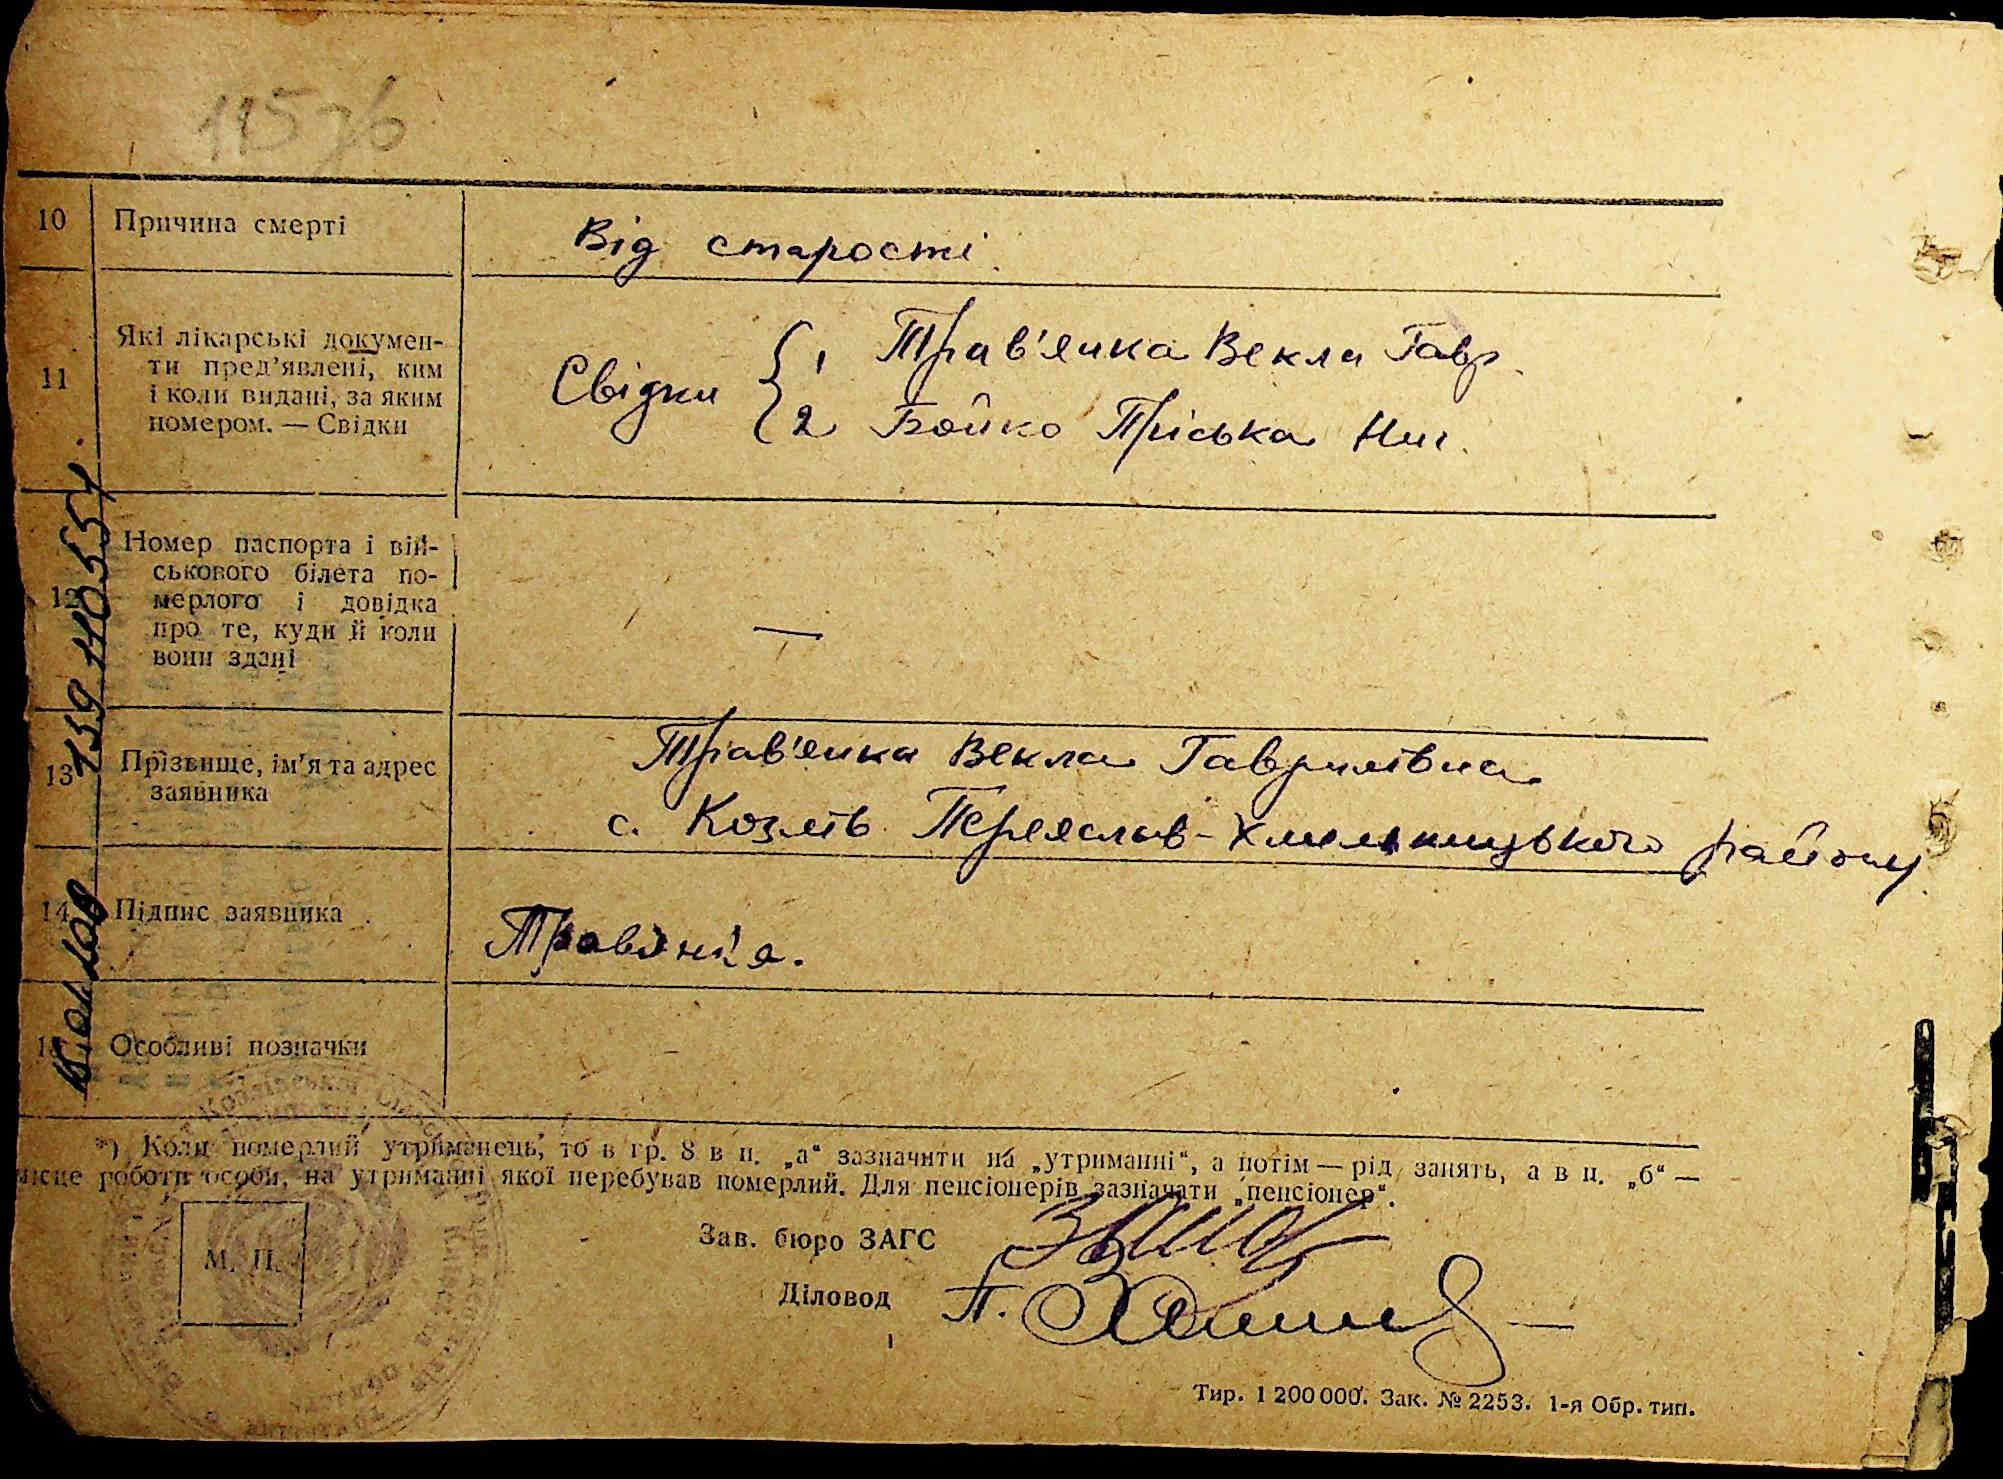 115 зв
10 Причина смерті Від старості.
11 Які лікарські докумен-
ти пред'явлені, ким
і коли видані, за яким
номером. — Свідки
Свідки { 1 Трав'янка Векла Гавр.
2 Бойко Пріська Ник.
12 Номер паспорта і вій-
ськового білета по-
мерлого і довідка
про те, куди й коли
вони здані
—
13 Прізвище, ім'я та адрес
заявника
Трав'янка Векла Гаврилівна
с. Козлів Переяслав-Хмельницького району
14 Підпис заявника. Травянка.
Особливі позначки
*) Коли померлий утриманець, то в гр. 8 в п. „а“ зазначити на „утриманні“, а потім — рід занять, а в п. „б“ —
місце роботи особи, на утриманні якої перебував померлий. Для пенсіонерів зазначати „пенсіонер“.
М. П.
Зав. бюро ЗАГС
Діловод П.
Тир. 1 200 000. Зак. № 2253. 1-я Обр. тип.